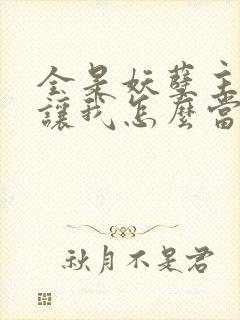 全是妖孽主
讓我怎麼當
秋月不是君